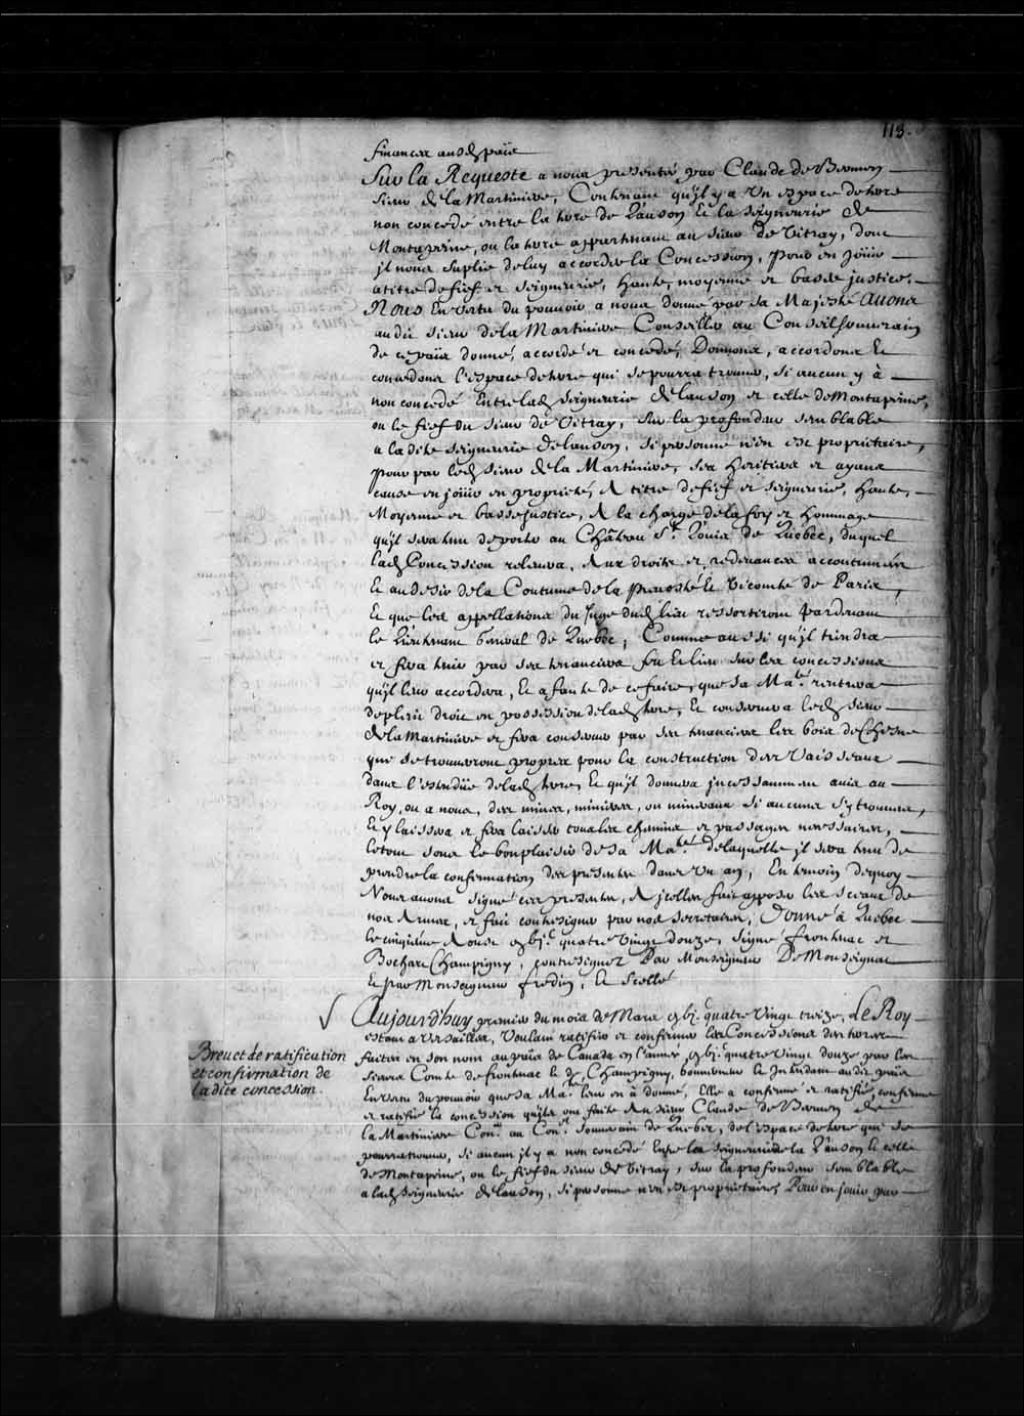 113.
finances audt païs
Sur la Requeste a nous presentée par Claude de Bermen
sieur de la Martiniere, Contenant qu'il y a un espace de terre
non concedé entre la terre de Lauson et la seigneurie de
Montapeine, ou la terre appartenant au sieur de Vitray, dont
jl nous suplie de luy accorder la Concession, pour en joüir
a titre de fief et seigneurie, haute, moyenne et basse justice.
Nous En vertu du pouvoir a nous donné par sa Majesté Avons
audit sieur de la Martiniere Conseiller au Conseil souverain
de ce païs donné, accordé et concedé, Donnons, accordons et
concedons l'espace de terre qui se pourra trouver, si aucun y à
non concedé Entre lad. seigneurie de lauson et celle de Montapeine,
ou le fief du sieur de Vitray, sur la profondeur semblable
a la dite seigneurie de lauson, si personne n'en est proprietaire,
pour par led. sieur de la Martiniere, ses heritiers et ayans
cause en joüir en proprieté, A titre de fief et seigneurie, haute,
Moyenne et basse justice, A la charge de la foy et hommage
qu'jl sera tenu de porter au Château St. Loüis de Quebec, duquel
lad. Concession relevera, Aux droits et redevances accoutumées
Et au desir de la Coutume de la prevosté et Vicomté de Paris,
Et que les appellations du Juge dud. lieu ressortiront pardevant
le Lieutenant General de Quebec, Comme aussi qu'jl tiendra
et fera tenir par ses tenanciers feu et lieu sur les concessions
qu'jl leur accordera, Et a faute de ce faire, que sa Mate. rentrera
de plein droit en possession de lad. terre, Et conservera led. sieur
de la Martiniere et fera conserver par ses tenanciers les bois de Chesne
qui se trouveront propres pour la construction des Vaisseaux
dans l'estendüe de lad. terre, Et qu'jl donnera jncessamment avis au
Roy, ou a nous, des mines, minieres, ou mineraux si aucuns s'y trouvent,
Et y laissera et fera laisser tous les chemins et passages necessaires,
le tout sous le bon plaisir de sa Mate. de laquelle jl sera tenu de
prendre la confirmation des presentes dans Un an, En temoin de quoy
Nous avons signé ces presentes, A jcelles fait apposer les sceaux de
nos Armes, et fait contresigner par nos secretaires, Donné à Quebec
le cinquiéme Aoust gbjc. quatre Vingt douze, signé frontenac et
Bochart Champigny, contresignez Par Monseigneur De Monseignat
Et par Monseigneur fredin, Et scellé
Aujourd'huy premier du mois de Mars gbjc. quatre Vingt treize, Le Roy
estant a Versailles, Voulant ratifier et confirmer les Concessions des terres
faites en son nom au païs de Canada en l'année gbjc. quatre Vingt douze par les
sieurs Comte de frontenac Et de Champigny, Gouverneur Et Intendant audit païs
En vertu du pouvoir que sa Mate. leur en à donné, Elle a confirmé et ratifié, confirme
et ratifie la concession qu'ils ont faite Au sieur Claude de Bermen de
la Martiniere Coner. au Conel. souverain de Quebec, de l'espace de terre qui se
pourra trouver, si aucun jl y a non concedé Entre la seigneurie de Lauson Et celle
de Montapeine, ou le fief du sieur de Vitray, sur la profondeur semblable
a lad. seigneurie de lauson, si personne n'en est proprietaire, Pour en jouir par
Brevet de ratification
et confirmation de
la dite concession.